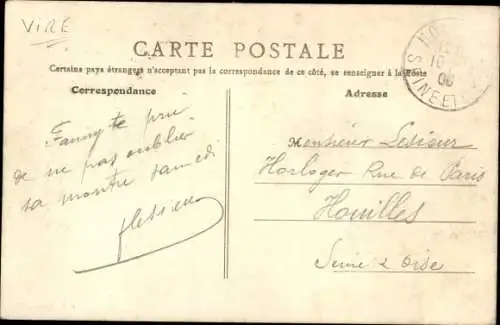 VIRE
CARTE POSTALE
Certains pays étrangers n'acceptent pas la correspondance de ce côté, se renseigner à la Poste
Correspondance
Adresse
Fanny te prie
de ne pas oublier
sa montre samedi
Monsieur Lesieur
Horloger Rue de Paris
Houilles
Seine & Oise